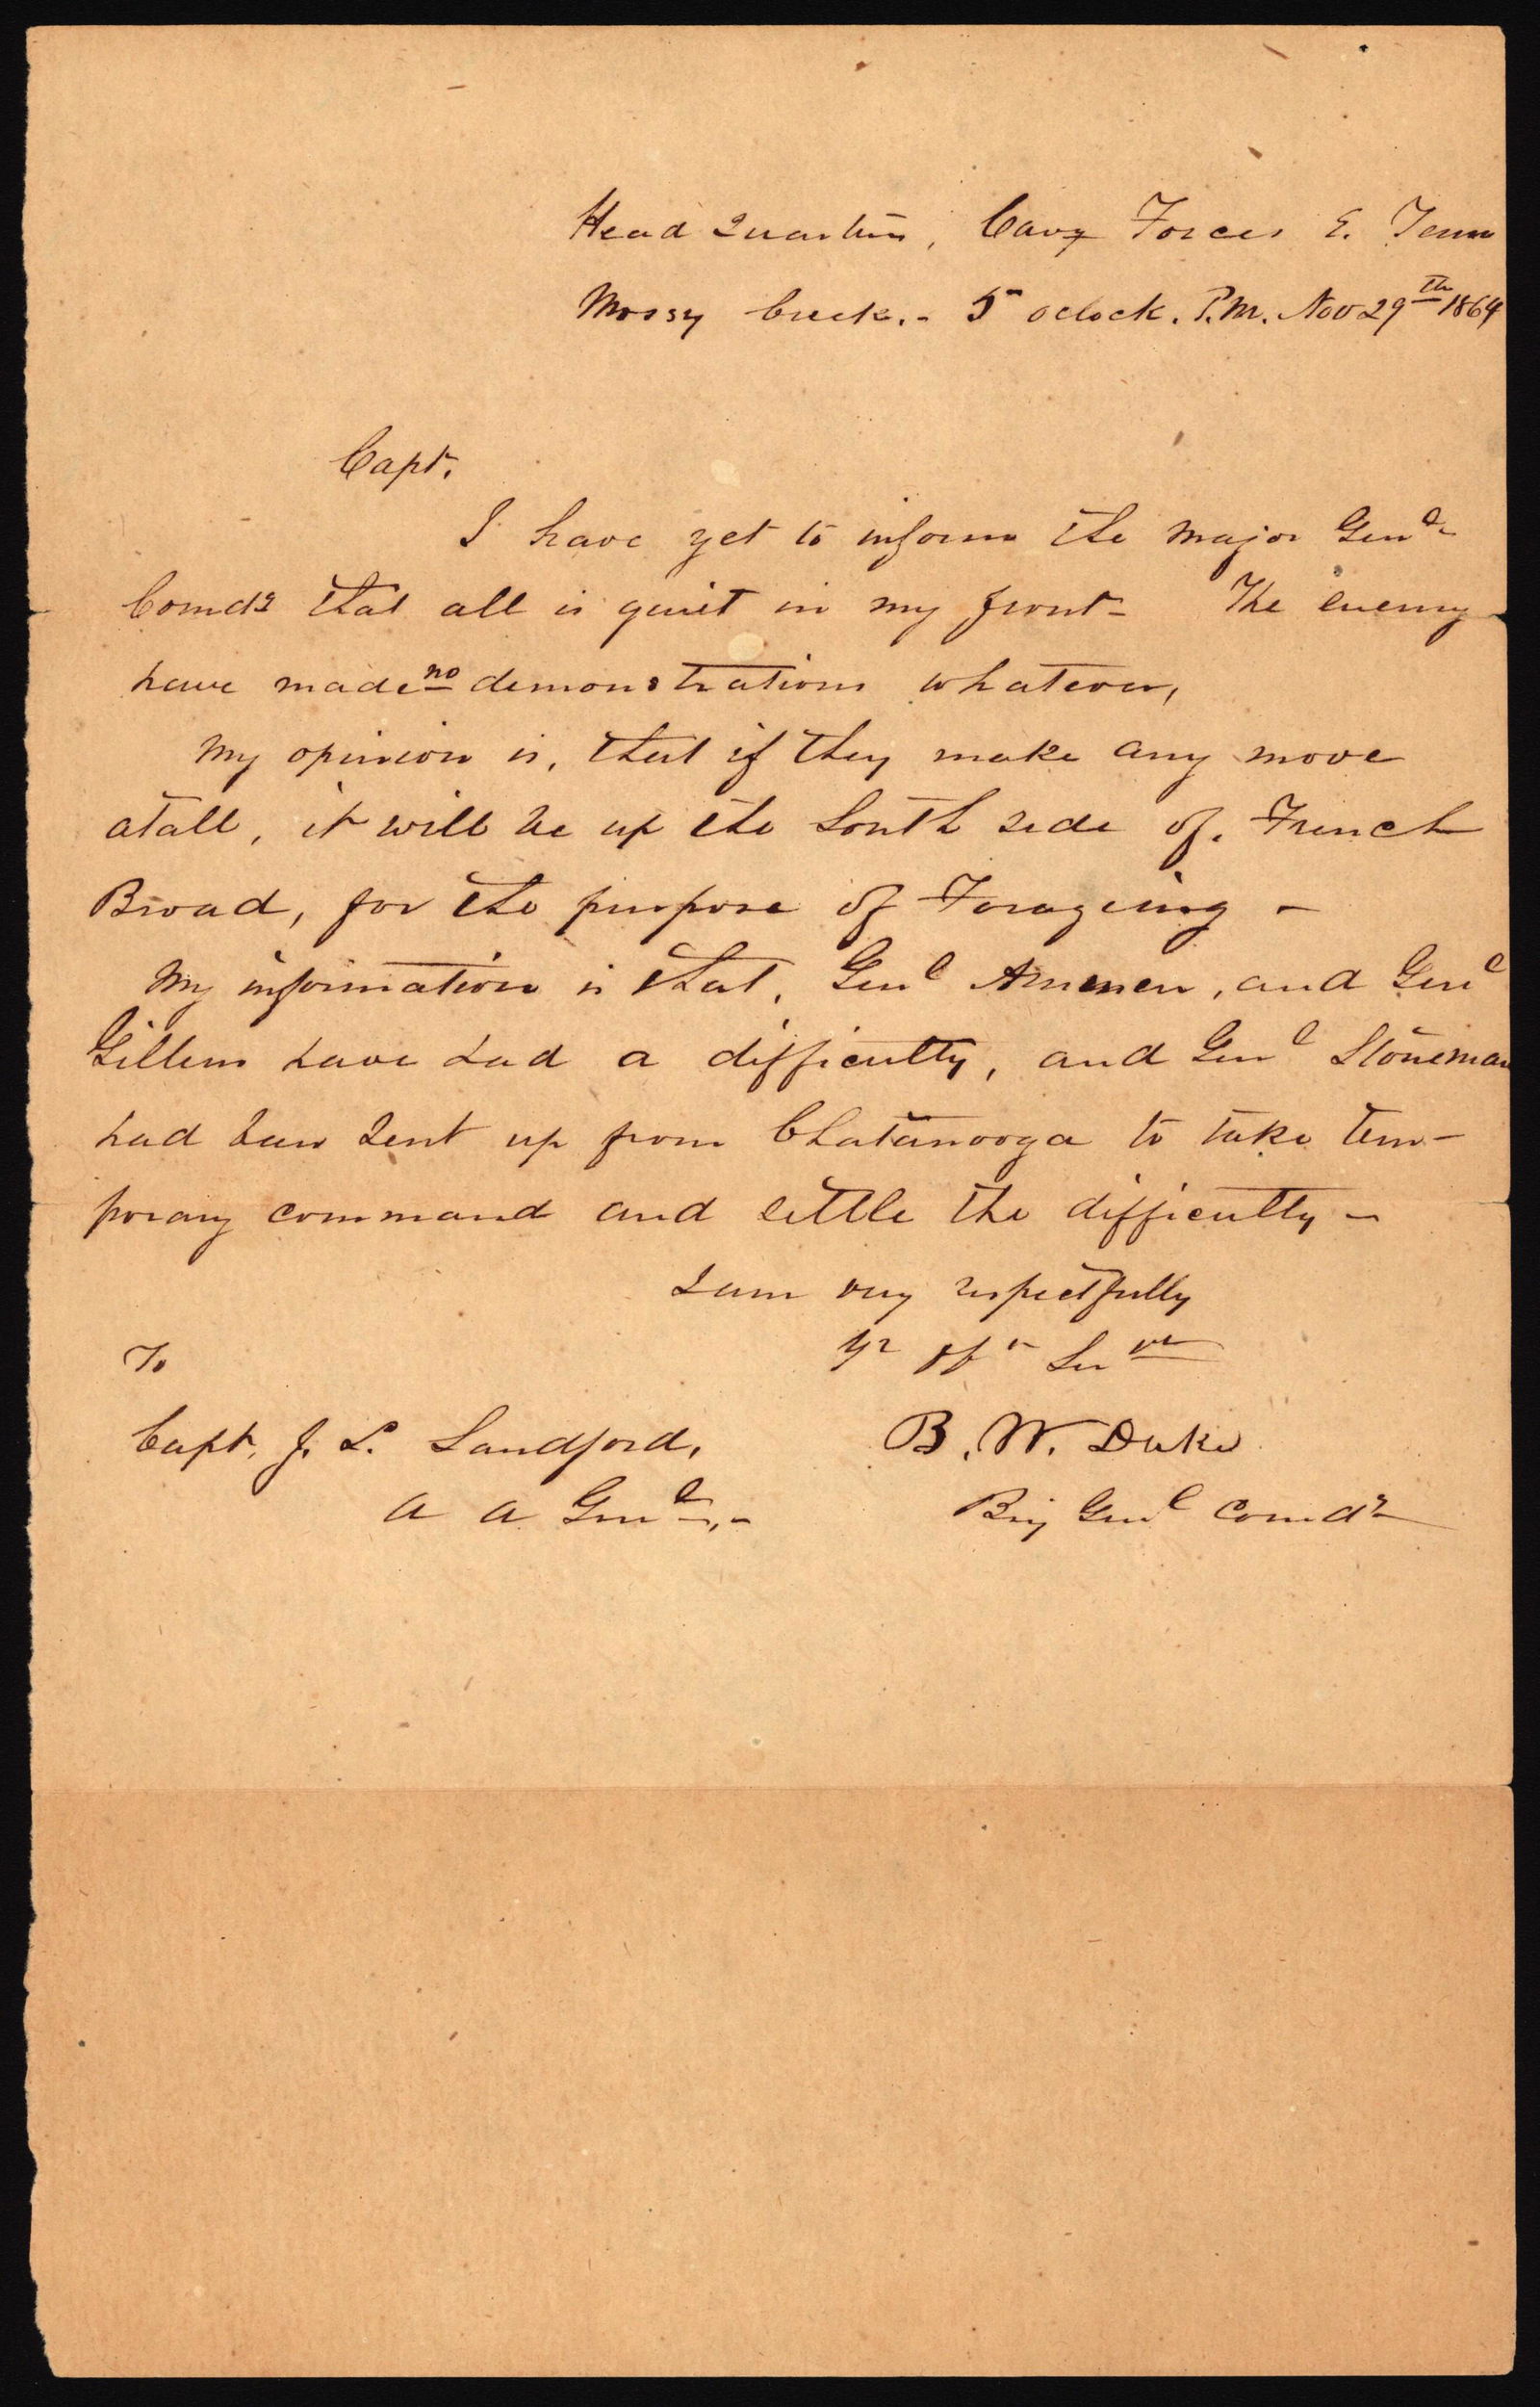 Head Quarters, Cavy Forces E. Tenn
Mossy Creek.- 5 oclock. P.M. Nov 29th 1864
Capt.
I have yet to inform the Major Genl
Comdr that all is quiet in my front- The enemy
have made no demonstrations whatever,
My opinion is, that if they make any move
atall, it will be up the South side of. French
Broad, for the purpose of Forageing -
My information is that, Genl Ammen, and Genl
Gillem have had a difficulty, and Genl Stoneman
had been sent up from Chatanooga to take tem-
porary command and settle the difficulty -
I am very respectfully
Yr obt Servt
To
Capt. J. L. Sandford,
B. W. Duke
A A Genl,-
Brig Genl Comdr